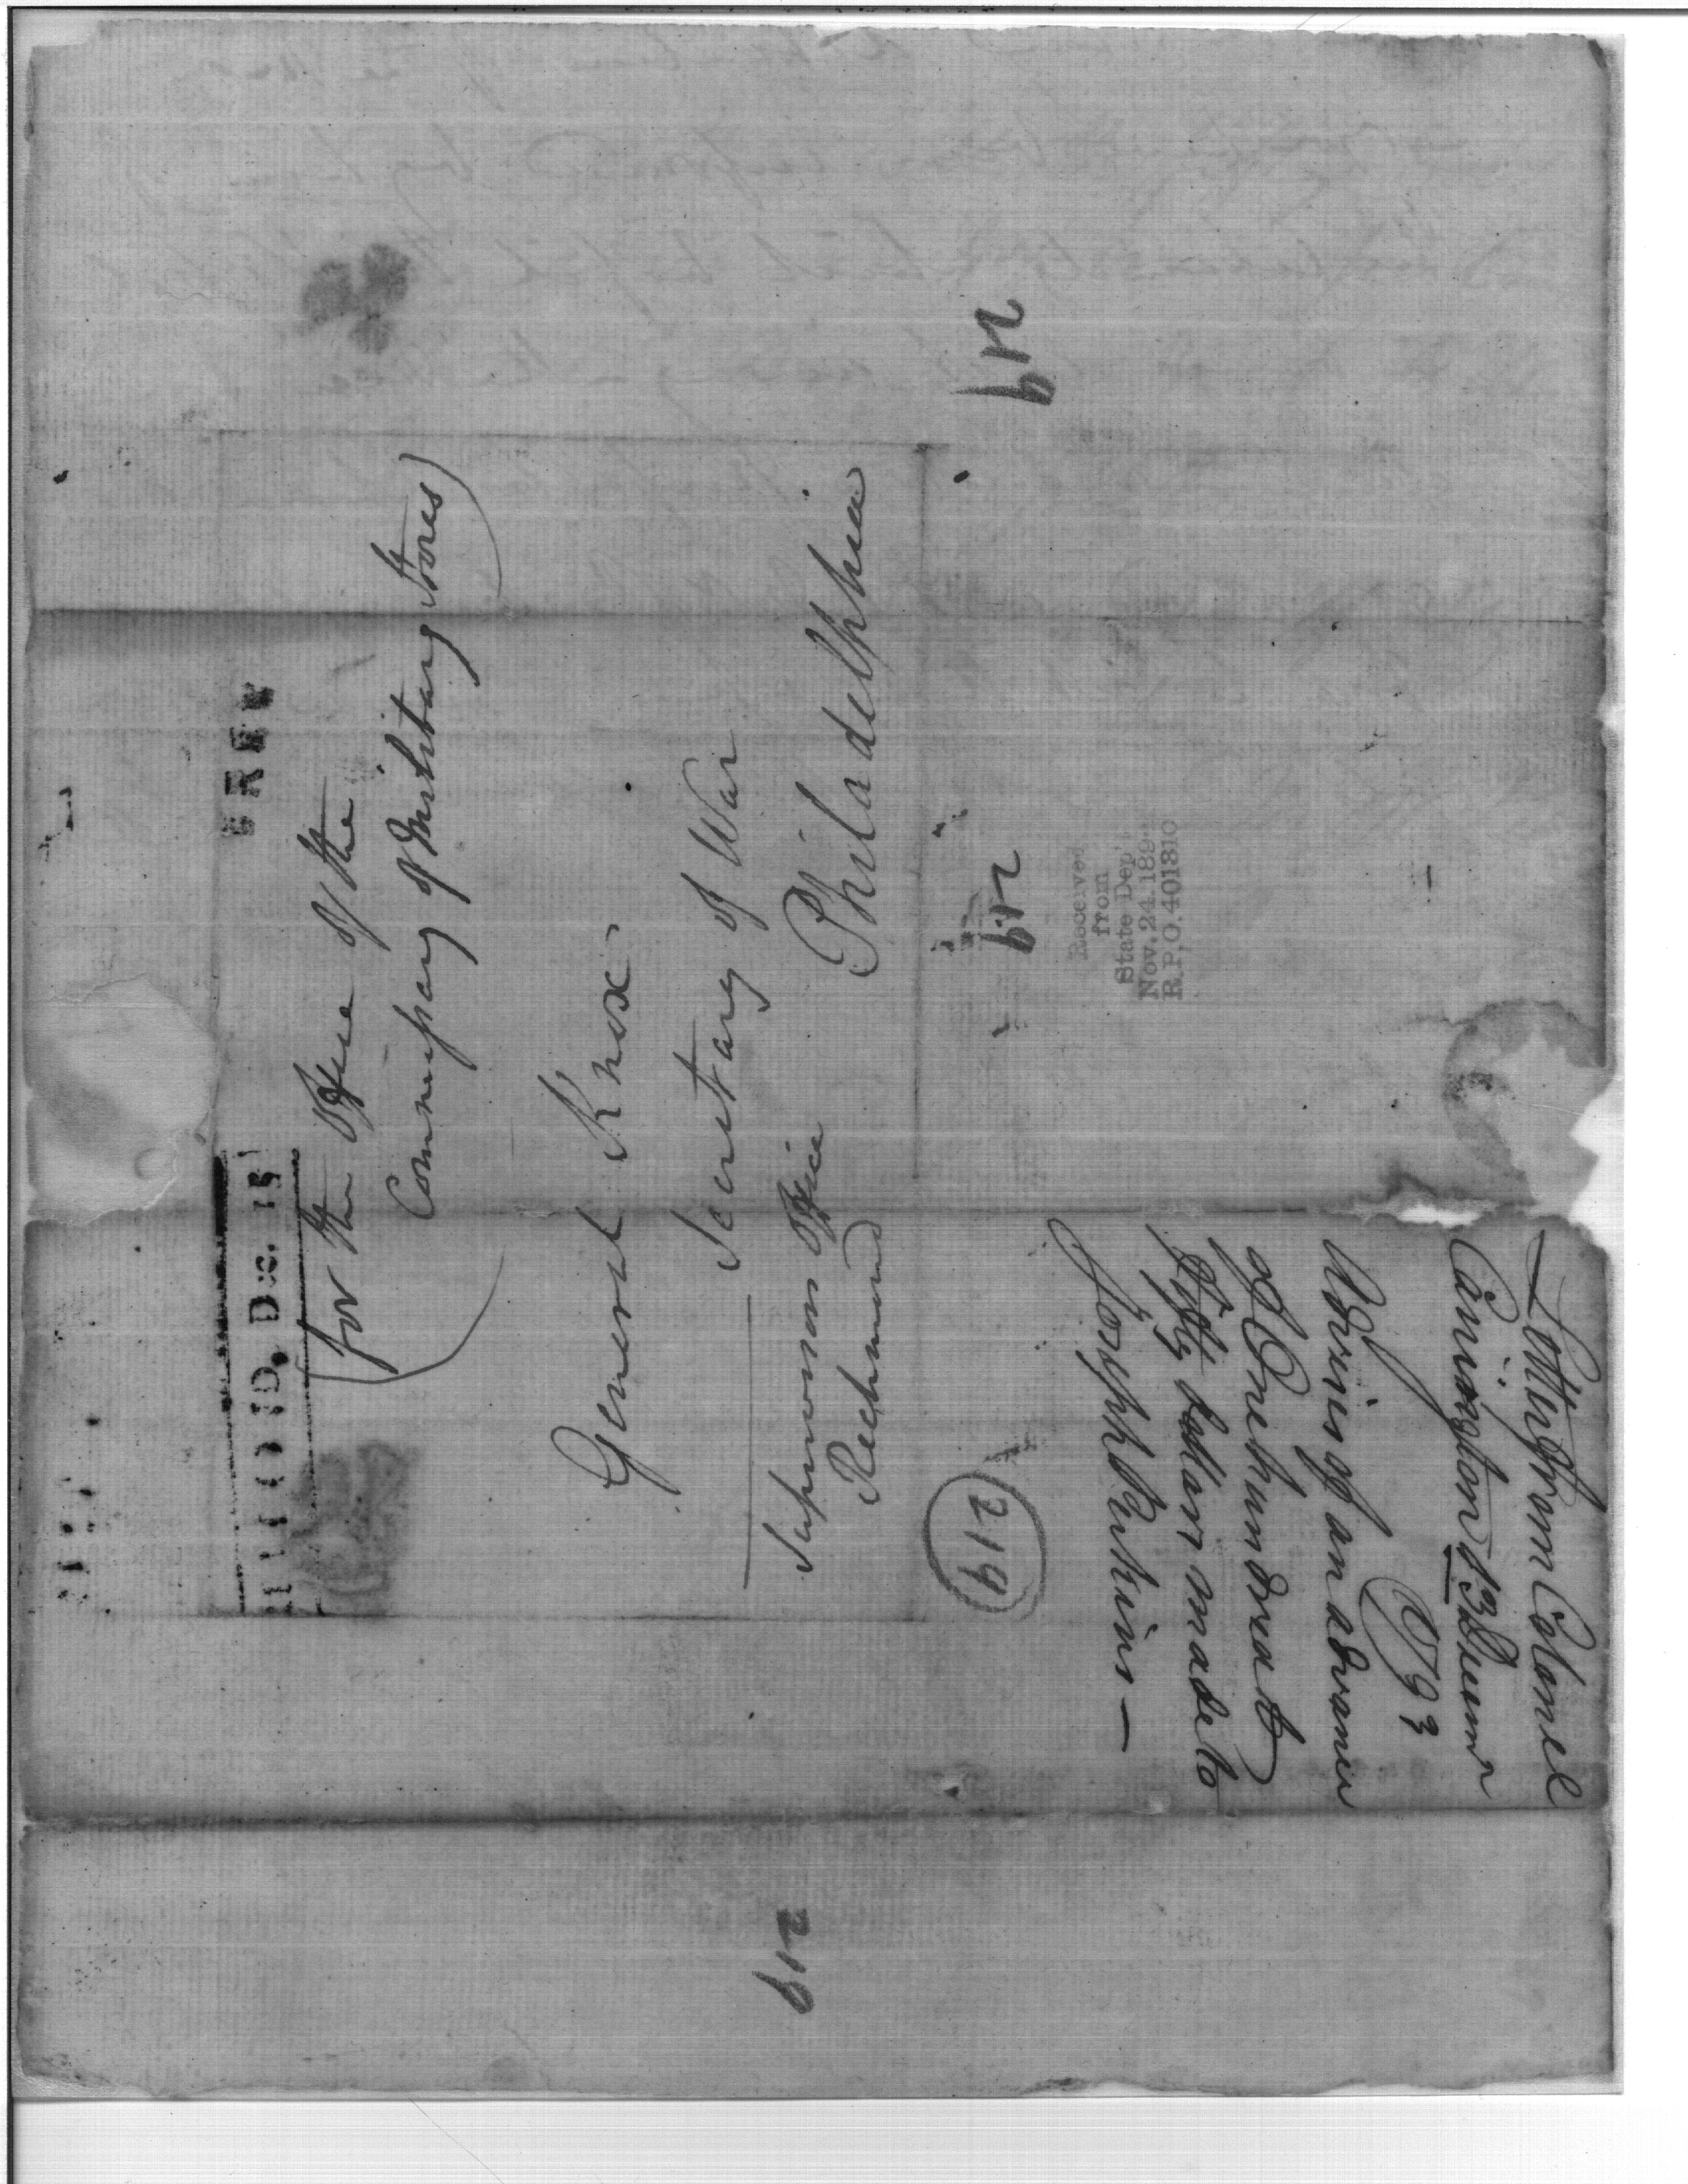 FREE
D, Dec. 15
(for the Office of the
Company of Military Stores)
General Knox
Secretary of War
Philadelphia
Supervisors Office
Richmond
219
219
219
219
Received
from
State Dep't
Nov. 24. 189
R.P.O. 401310
Letter from Colonel
Carrington 13 Decemr
1793
Advising of an advance
of One hundred &
fifty dollars made to
Joseph Perkins —